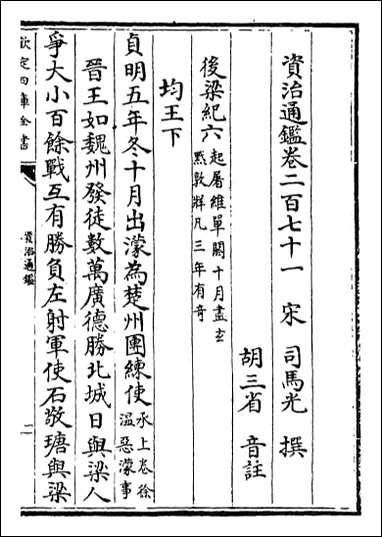 資治通鑑卷二百七十一　宋　司馬光　撰
胡三省　音註
後梁紀六 起屠維單閼十月盡玄
黓敦牂凡三年有奇
均王下
貞明五年冬十月出濛為楚州團練使 承上卷徐
温惡濛事
晉王如魏州發徒數萬廣德勝北城日與梁人
爭大小百餘戰互有勝負左射軍使石敬瑭與梁
欽定四庫全書
資治通鑑